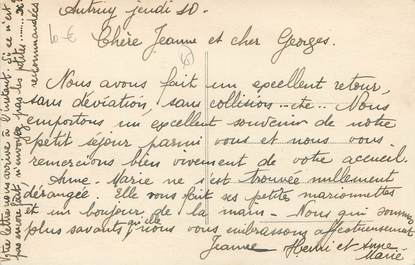 Autruy jeudi 10.
10 €
Chère Jeanne et cher Georges.
Nous avons fait un excellent retour,
sans déviation, sans collision..etc.. Nous
emportons un excellent souvenir de notre
petit séjour parmi vous et nous vous
remercions bien vivement de votre accueil.
Anne-Marie ne s'est trouvée nullement
dérangée. Elle vous fait ses petites marionnettes
et un bonjour de la main - Nous qui sommes
plus savants qu'elle nous vous embrassons affectueusement
Jeanne Henri et Anne-
Marie
Votre lettre nous arrive à l'instant. Si ce n'est
pas encore fait n'envoyez pas les
recommandées